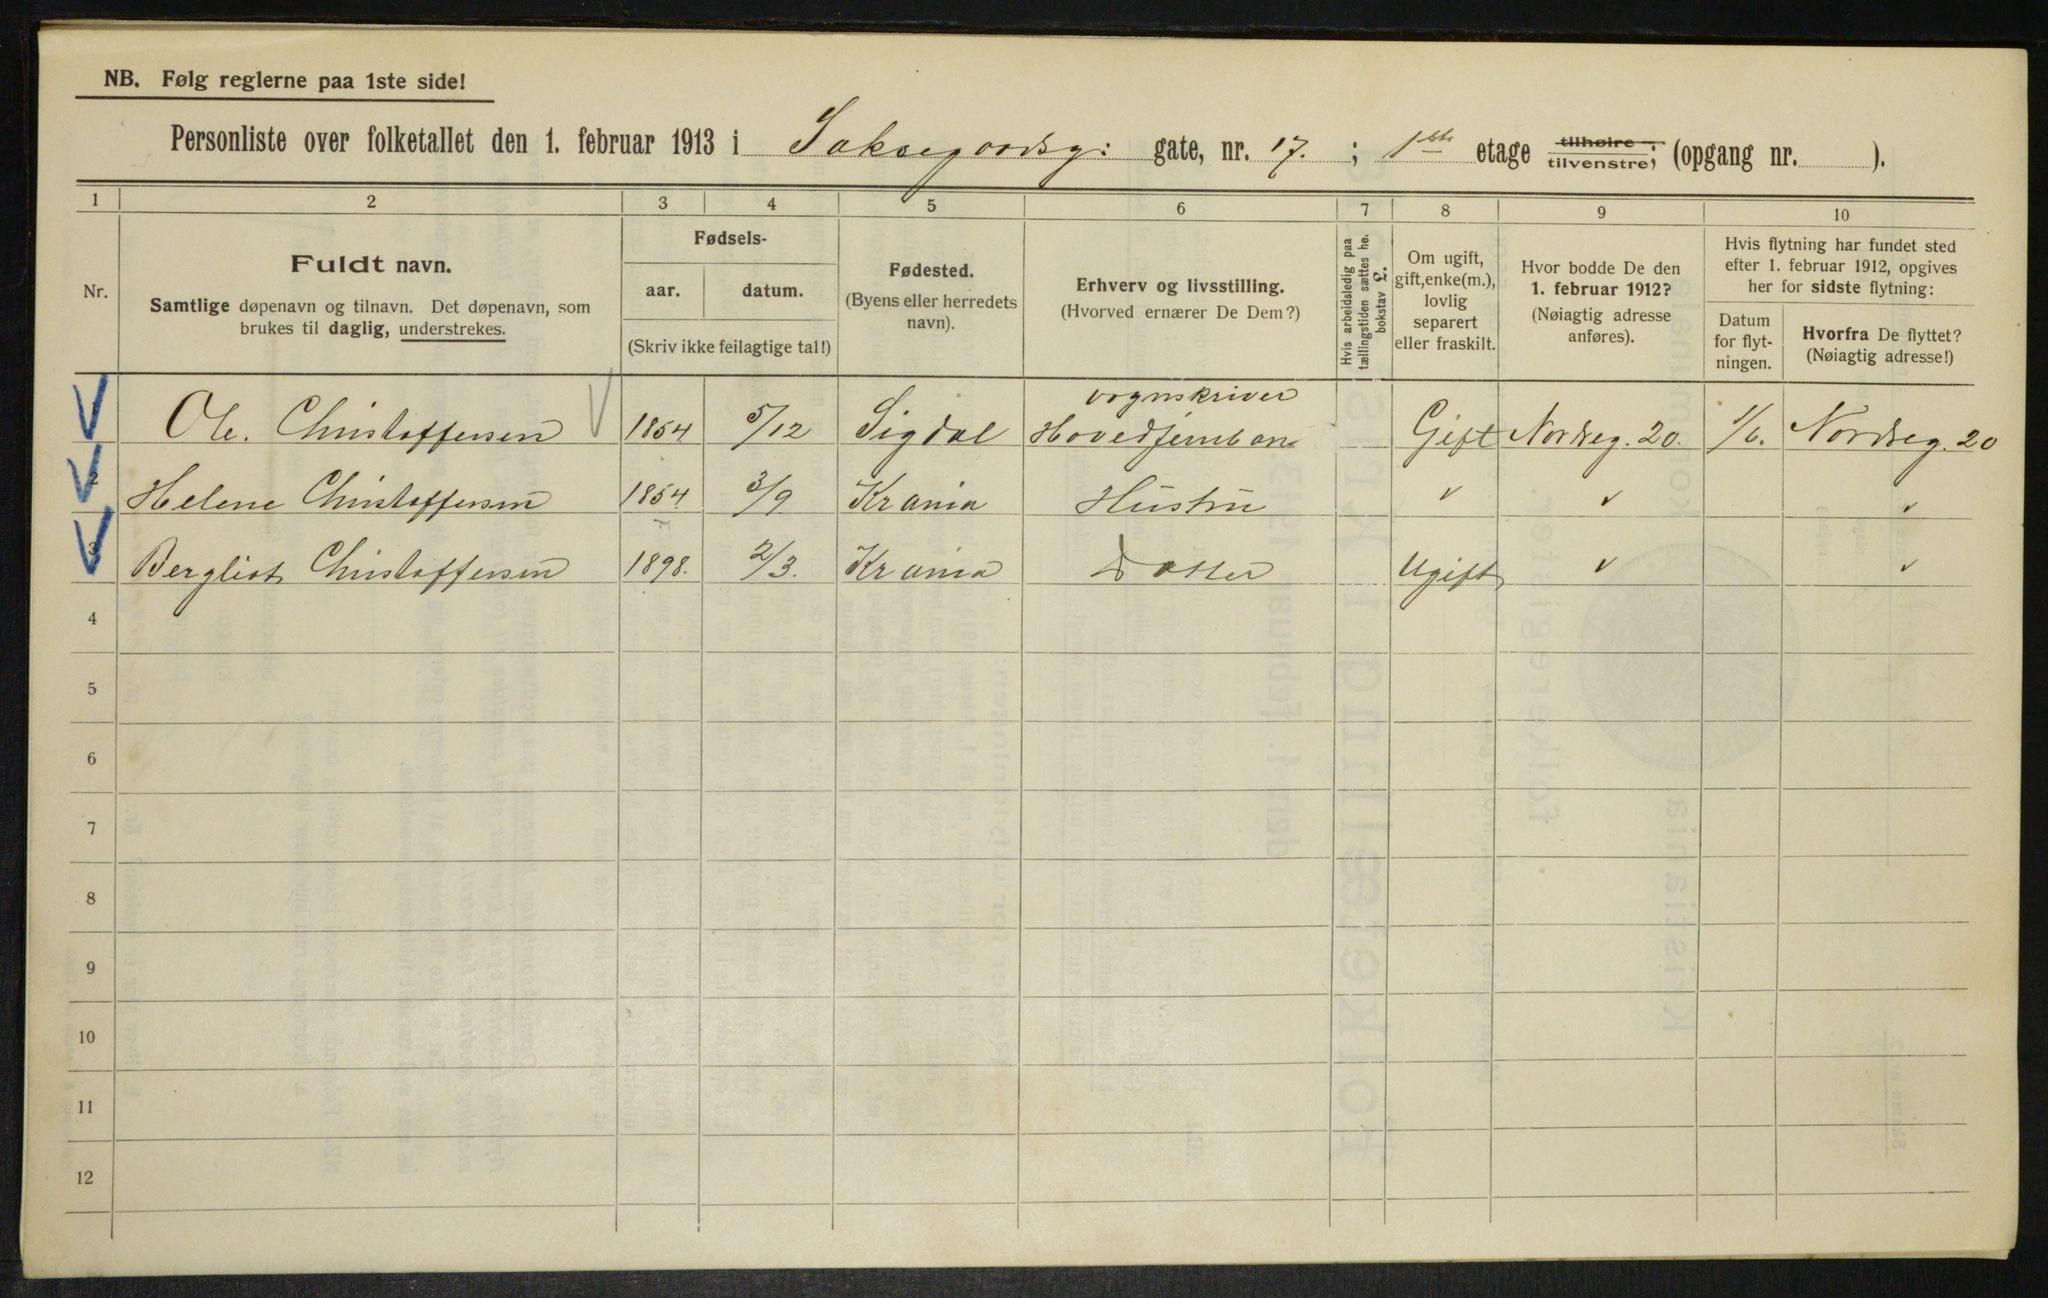 NB. Følg reglerne paa 1ste side!
Personliste over folketallet den 1. februar 1913 i Saksegaardsg: gate, nr. 17. ; 1ste etage tilhøire tilvenstre; (opgang nr. ).
1 2 3 4 5 6 7 8 9 10
Nr.
Fuldt navn.
Samtlige døpenavn og tilnavn. Det døpenavn, som
brukes til daglig, understrekes.
Fødsels-
aar. datum.
(Skriv ikke feilagtige tal!)
Fødested.
(Byens eller herredets
navn).
Erhverv og livsstilling.
(Hvorved ernærer De Dem?)
Hvis arbeidsledig paa
tællingstiden sættes he.
bokstav L.
Om ugift,
gift, enke(m.),
lovlig
separert
eller fraskilt.
Hvor bodde De den
1. februar 1912?
(Nøiagtig adresse
anføres).
Hvis flytning har fundet sted
efter 1. februar 1912, opgives
her for sidste flytning:
Datum
for flyt-
ningen.
Hvorfra De flyttet?
(Nøiagtig adresse!)
vognskriver
Ole. Christoffersen 1854 5/12 Sigdal Hovedjernban Gift Nordreg. 20. 1/6. Nordreg. 20
2 Helene Christoffersen 1854 3/9 Krania Hustru " " "
3 Bergliot Christoffersen 1898. 2/3. Krania Datter Ugift " "
4
5
6
7
8
9
10
11
12